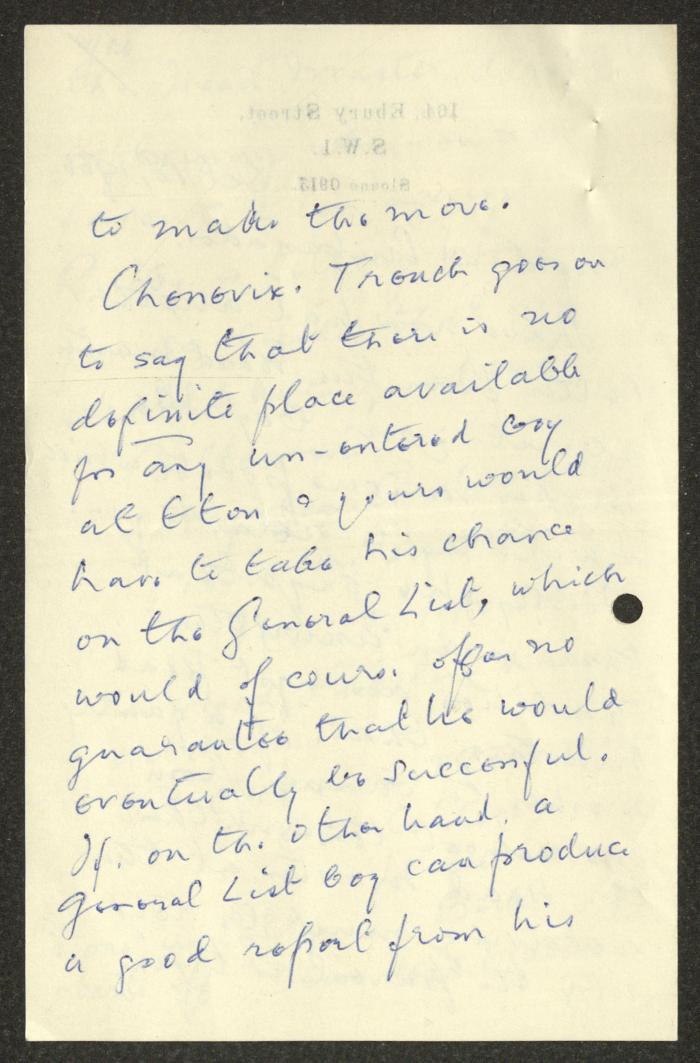 164, Ebury Street,
S.W.1.
Sloane
to make the move.
Chenevix. Trench goes on
to say that there is no
definite place available
for any un-entered boy
at Eton & yours would
have to take his chance
on the General List, which
would of course offer no
guarantee that he would
eventually be successful.
If. on the other hand. a
General List boy can produce
a good report from his